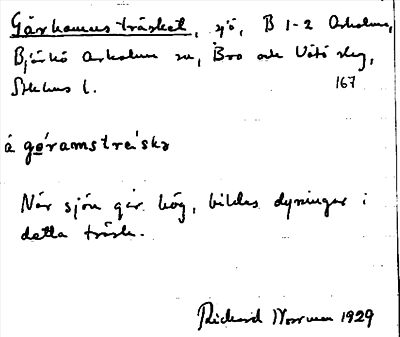 Gårhamnsträsket, sjö, B 1-2 Arholma,
Björkö Arholma sn, Bro och Vätö skg,
Sthlms l. 167
å góramstreiskə
När sjön går hög, bildas dyningar i
detta träsk.
Richard Norrman 1929